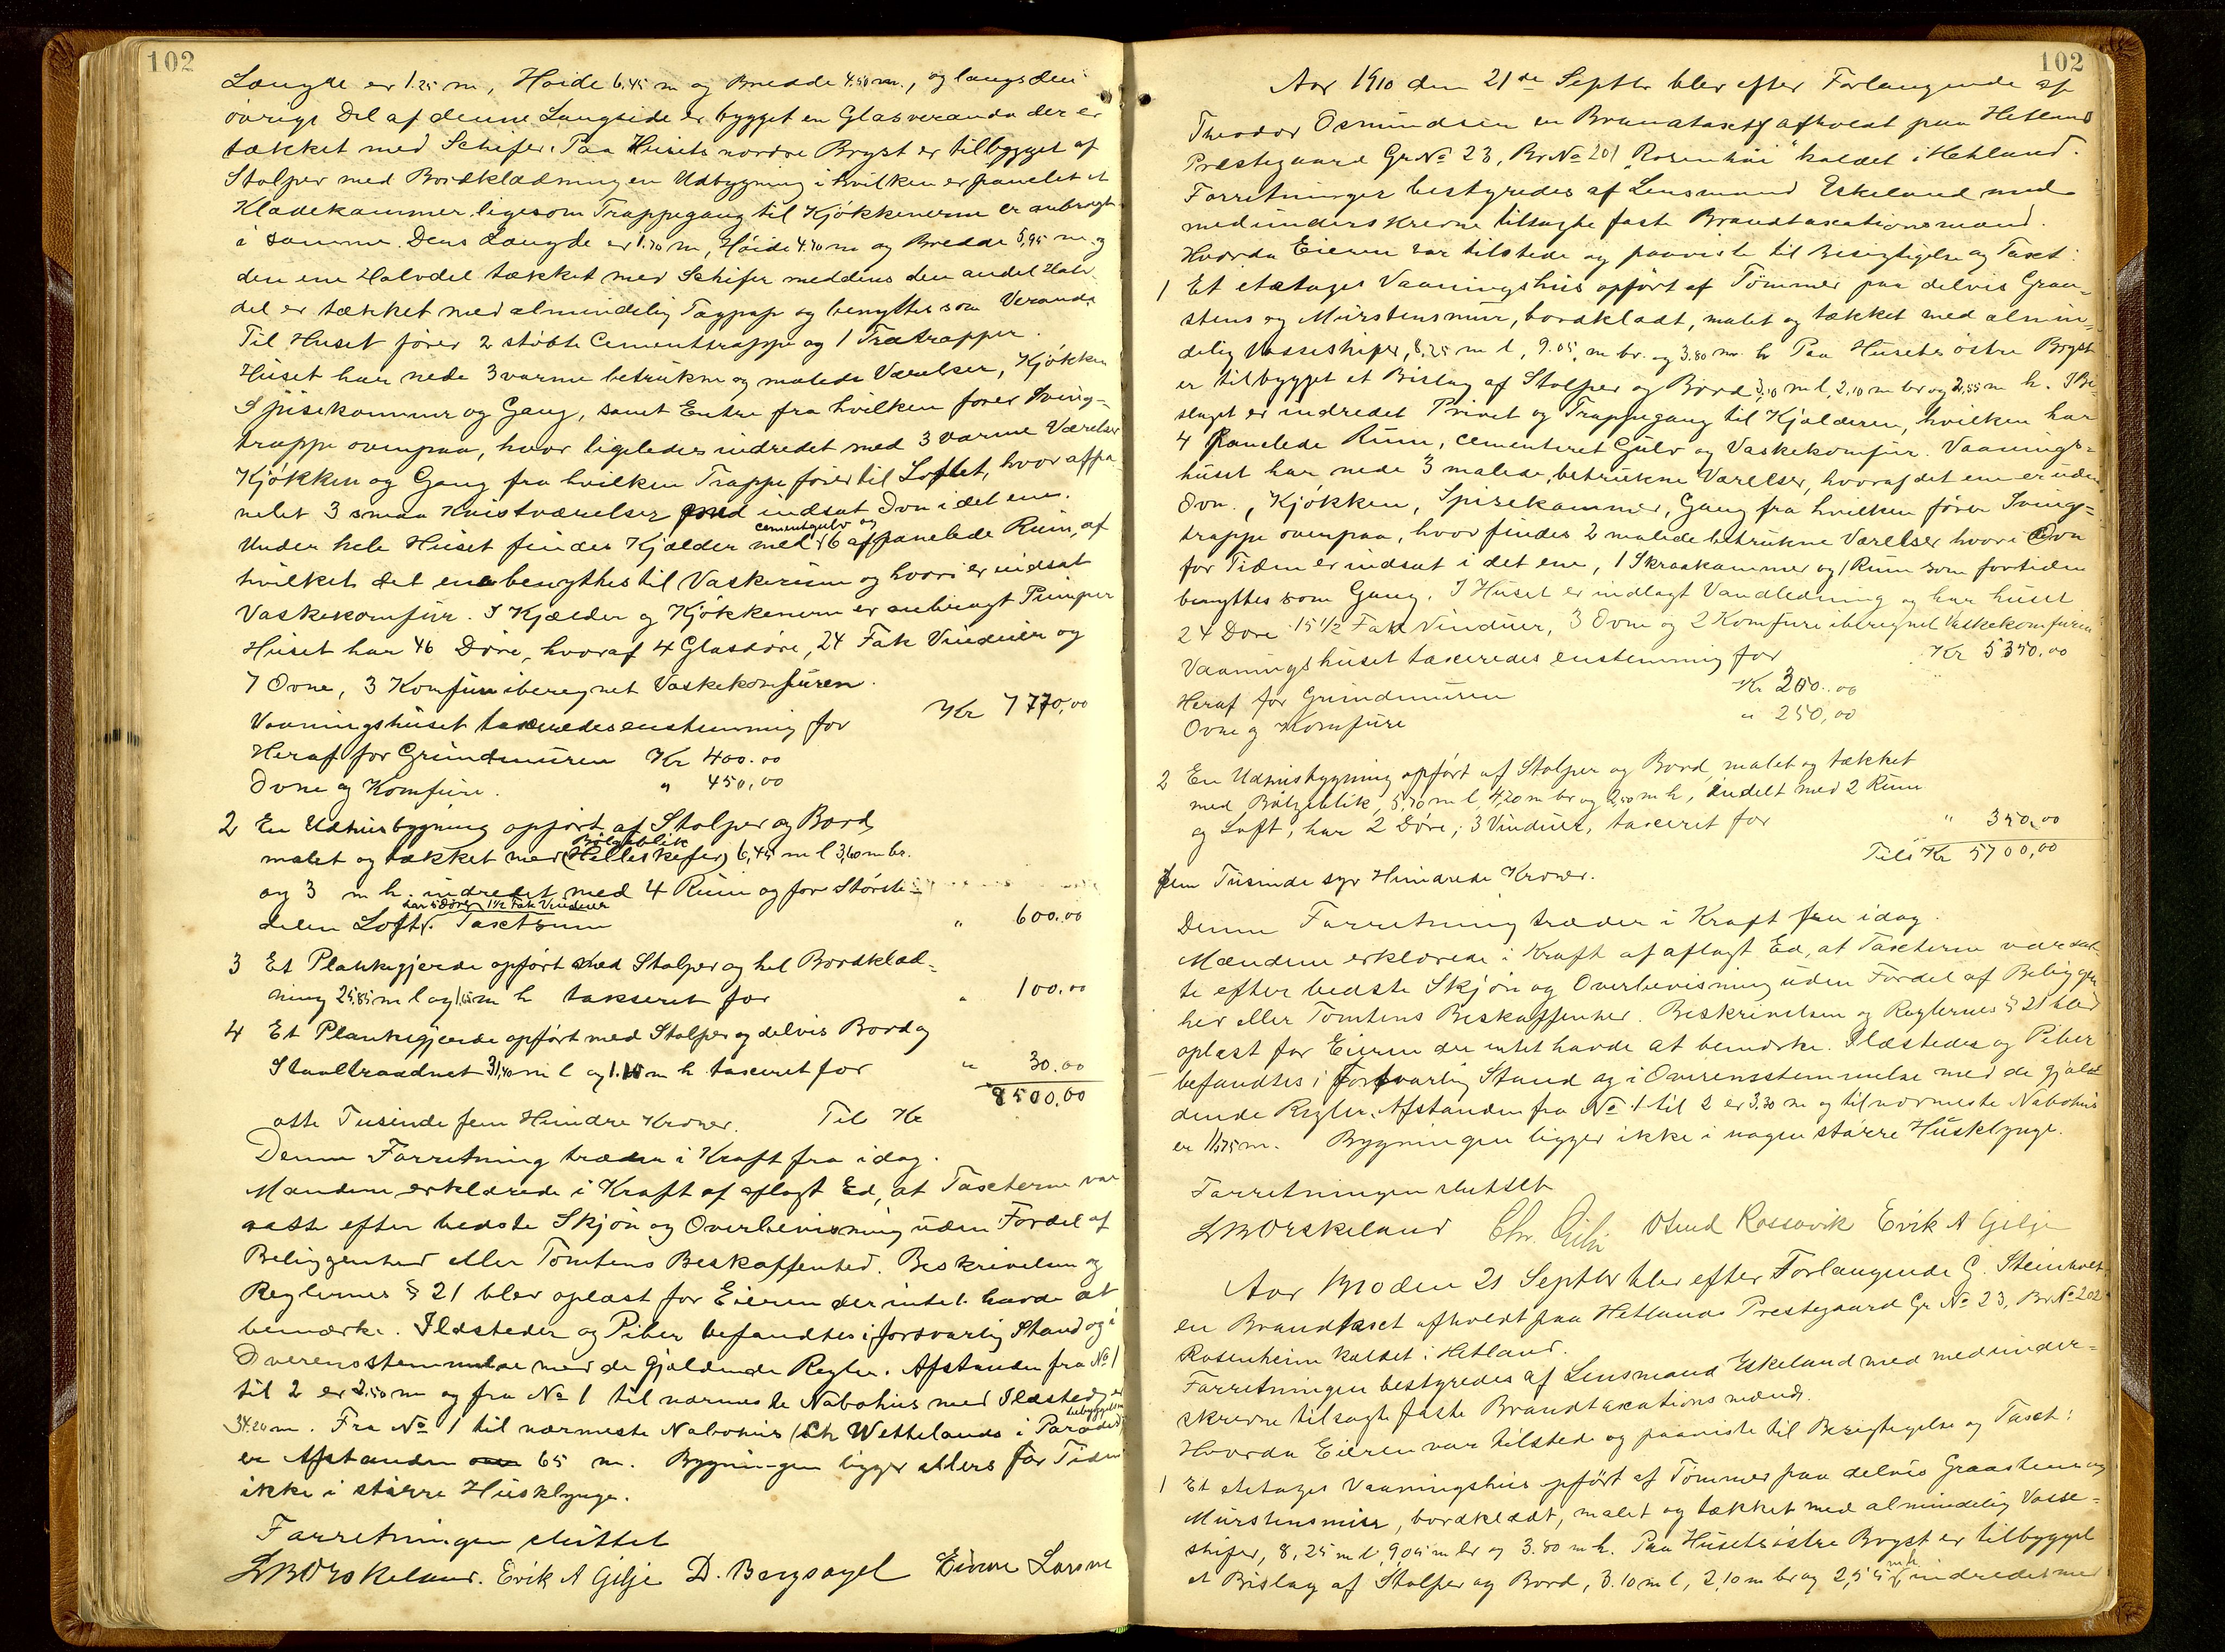 102
Længde er 1.25 m, Høide 6.45 m og Bredde 4.50 m., og langs den
øvrige Del af denne Langside er bygget en Glasveranda der er
tækket med Schifer. Paa Husets nordre Bryst er tilbygget af
Stolper med Bordklædning en Udbygning i hvilken er panelet et
Klædekammer, ligesom Trappegang til Kjøkkenerne er anbragt
i samme. Dens Længde er 1.70 m, Høide 4.70 m og Bredde 5,95 m. og
den ene Halvdel tækket med Schifer meddens den andel Halv
del er tækket med almindelig Tagpap og benyttes som Veranda
Til Huset fører 2 støbte Cementtrappe og 1 Trætrappe.
Huset har nede 3 varme betrukne og malede Værelser, Kjøkken
Spisekammer og Gang, samt Entre fra hvilken fører Sving-
trappe ovenpaa, hvor ligeledes indredet med 3 varme Værelser
Kjøkken og Gang fra hvilken Trappe fører til Loftet, hvor affpa
nelet 3 smaa Kvistværelser med indsat Ovn i det ene.
Under hele Huset findes Kjælder med cementgulv og 6 affpanelede Rum, af
hvilket det ene benyttes til Vaskerum og hvori er indsat
Vaskekomfur. I Kjælder og Kjøkkenerne er anbragt Pumper
Huset har 46 Døre, hvoraf 4 Glasdøre, 24 Fak Vinduer og
7 Ovne, 3 Komfure iberegnet Vaskekomfuren.
Vaaningshuset taxeredes enstemmig for Kr 7770,00
Heraf for Grundmuren Kr 400.00
Ovne og Komfure. " 450,00
2 En Udhusbygning opført af Stolper og Bord,
malet og tækket med (Helleskifer) Bølgeblik 6,45 m l 3,60 m br.
og 3 m h. indredet med 4 Rum og for Største-
delen Loft. har 5 Døre 1 1/2 Fak Vinduer Taxtsum " 600.00
3 Et Plankegjerde opført med Stolper og hel Bordklæd-
ning 25,85 m l og 1,65 m h takseret for " 100.00
4 Et Plankegjerde opført med Stolper og delvis Bord og
Staaltraadnet 31,40 m l og 1.15 m h taxeret for " 30.00
otte Tusinde fem Hundre Kroner. Tils Kr 8500.00
Denne Forretning træder i Kraft fra idag.
Mændene erklærede i Kraft af aflagt Ed, at Taxterne var
satte efter bedste Skjøn og Overbevisning uden Fordel af
Beliggenhed eller Tomtens Beskaffenhed. Beskrivelsen og
Reglernes § 21 blev oplæst for Eieren der intet havde at
bemærke. Ildsteder og Piber befandtes i forsvarlig Stand og i
Overensstemmelse med de gjældende Regler. Afstanden fra No 1
til 2 er 2.50 m og fra No 1 til nærmeste Nabohus med Ildsted er
34.20 m. Fra No 1 til nærmeste Nabohus (Ch Wettelands i Paradis) bebyggelsen
er Afstanden 65 m. Bygningen ligger ellers for Tiden
ikke i større Husklynge.
Forretningen sluttet
Eskeland. Erik A Gilje D. Bergsagel Einar Larsen
102
Aar 1910 den 21de Septbr blev efter Forlangende af
Theodor Osmundsen en Brandtaxt afholdt paa Hetland
Præstegaard Gr No 23, Br No 201 "Rosenhøi" kaldet i Hetland.
Forretningen bestyredes af Lensmand Eskeland med
medunderskrevne tilsagte faste Brandtaxationsmænd.
Hvorda Eieren var tilstede og paaviste til Besigtigelse og Taxt:
1 Et etetages Vaaningshus opført af Tømmer paa delvis Graa-
stens og Murstensmur, bordklædt, malet og tækket med almin-
delig Vosseskifer, 8,25 m l, 9.05 m br. og 3.80 m. h Paa Husets østre Bryst
er tilbygget et Bislag af Stolper og Bord 3,10 m l, 2,10 m br og 2,55 m h. I Bi-
slaget er indredet Privet og Trappegang til Kjælderen, hvilken har
4 Panelede Rum, cementeret Gulv og Vaskekomfur. Vaanings-
huset har nede 3 malede, betrukne Værelser, hvoraf det ene er uden
Ovn., Kjøkken, Spisekammer, Gang fra hvilken fører Sving-
trappe ovenpaa, hvor findes 2 malede betrukne Værelser hvori Ovn
for Tiden er indsat i det ene, 1 Skraakammer og 1 Rum som fortiden
benyttes som Gang. I Huset er indlagt Vandledning og har huset
24 Døre 15 1/2 Fak Vinduer, 3 Ovne og 2 Komfure iberegnet Vaskekomfuren
Vaaningshuset taxeredes enstemmig for Kr 5350.00
Heraf for Grundmuren Kr 200.00
Ovne og Komfure " 250,00
2 En Udhusbygning opført af Stolper og Bord, malet og tækket
med Bølgeblik, 5,70 m l, 4,20 m br og 2,50 m h, indelt med 2 Rum
og Loft, har 2 Døre, 3 Vinduer, taxeret for " 350,00
Tils Kr 5700,00
fem Tusinde syv Hundrede Kroner.
Denne Forretning træder i Kraft fra idag.
Mændene erklærede i Kraft af aflagt Ed, at Taxterne var sat-
te efter bedste Skjøn og Overbevisning uden Fordel af Beliggen
hed eller Tomtens Beskaffenhed. Beskrivelsen og Reglernes § 21 blev
oplæst for Eieren der intet havde at bemærke. Ildsteder og Piber
befandtes i forsvarlig Stand og i Overensstemmelse med de gjæl-
dende Regler. Afstanden fra No 1 til 2 er 3.30 m og til nærmeste Nabohus
er 11,75 m. Bygningen ligger ikke i nogen større Husklynge.
Forretningen sluttet
Eskeland Chr. Gilje Osmund Rossavik Erik A Gilje
Aar 1910 den 21 Septbr blev efter Forlangende G. Steinholt
en Brandtaxt afholdt paa Hetlands Prestegaard Gr No 23, Br No 202
Rosenheim kaldet i Hetland.
Forretningen bestyredes af Lensmand Eskeland med medunder-
skrevne tilsagte faste Brandtaxations mænd.
Hvorda Eieren var tilstede og paaviste til Besigtigelse og Taxt:
1 Et etetages Vaaningshus opført af Tømmer paa delvis Graastens og
Murstensmur, bordklædt, malet og tækket med almindelig Vosse-
skifer, 8,25 m l 9,05 m br og 3.80 m h. Paa Husets østre Bryst er tilbygget
et Bislag af Stolper og Bord, 3.10 m l, 2,10 m br og 2,55 m h. indredet med